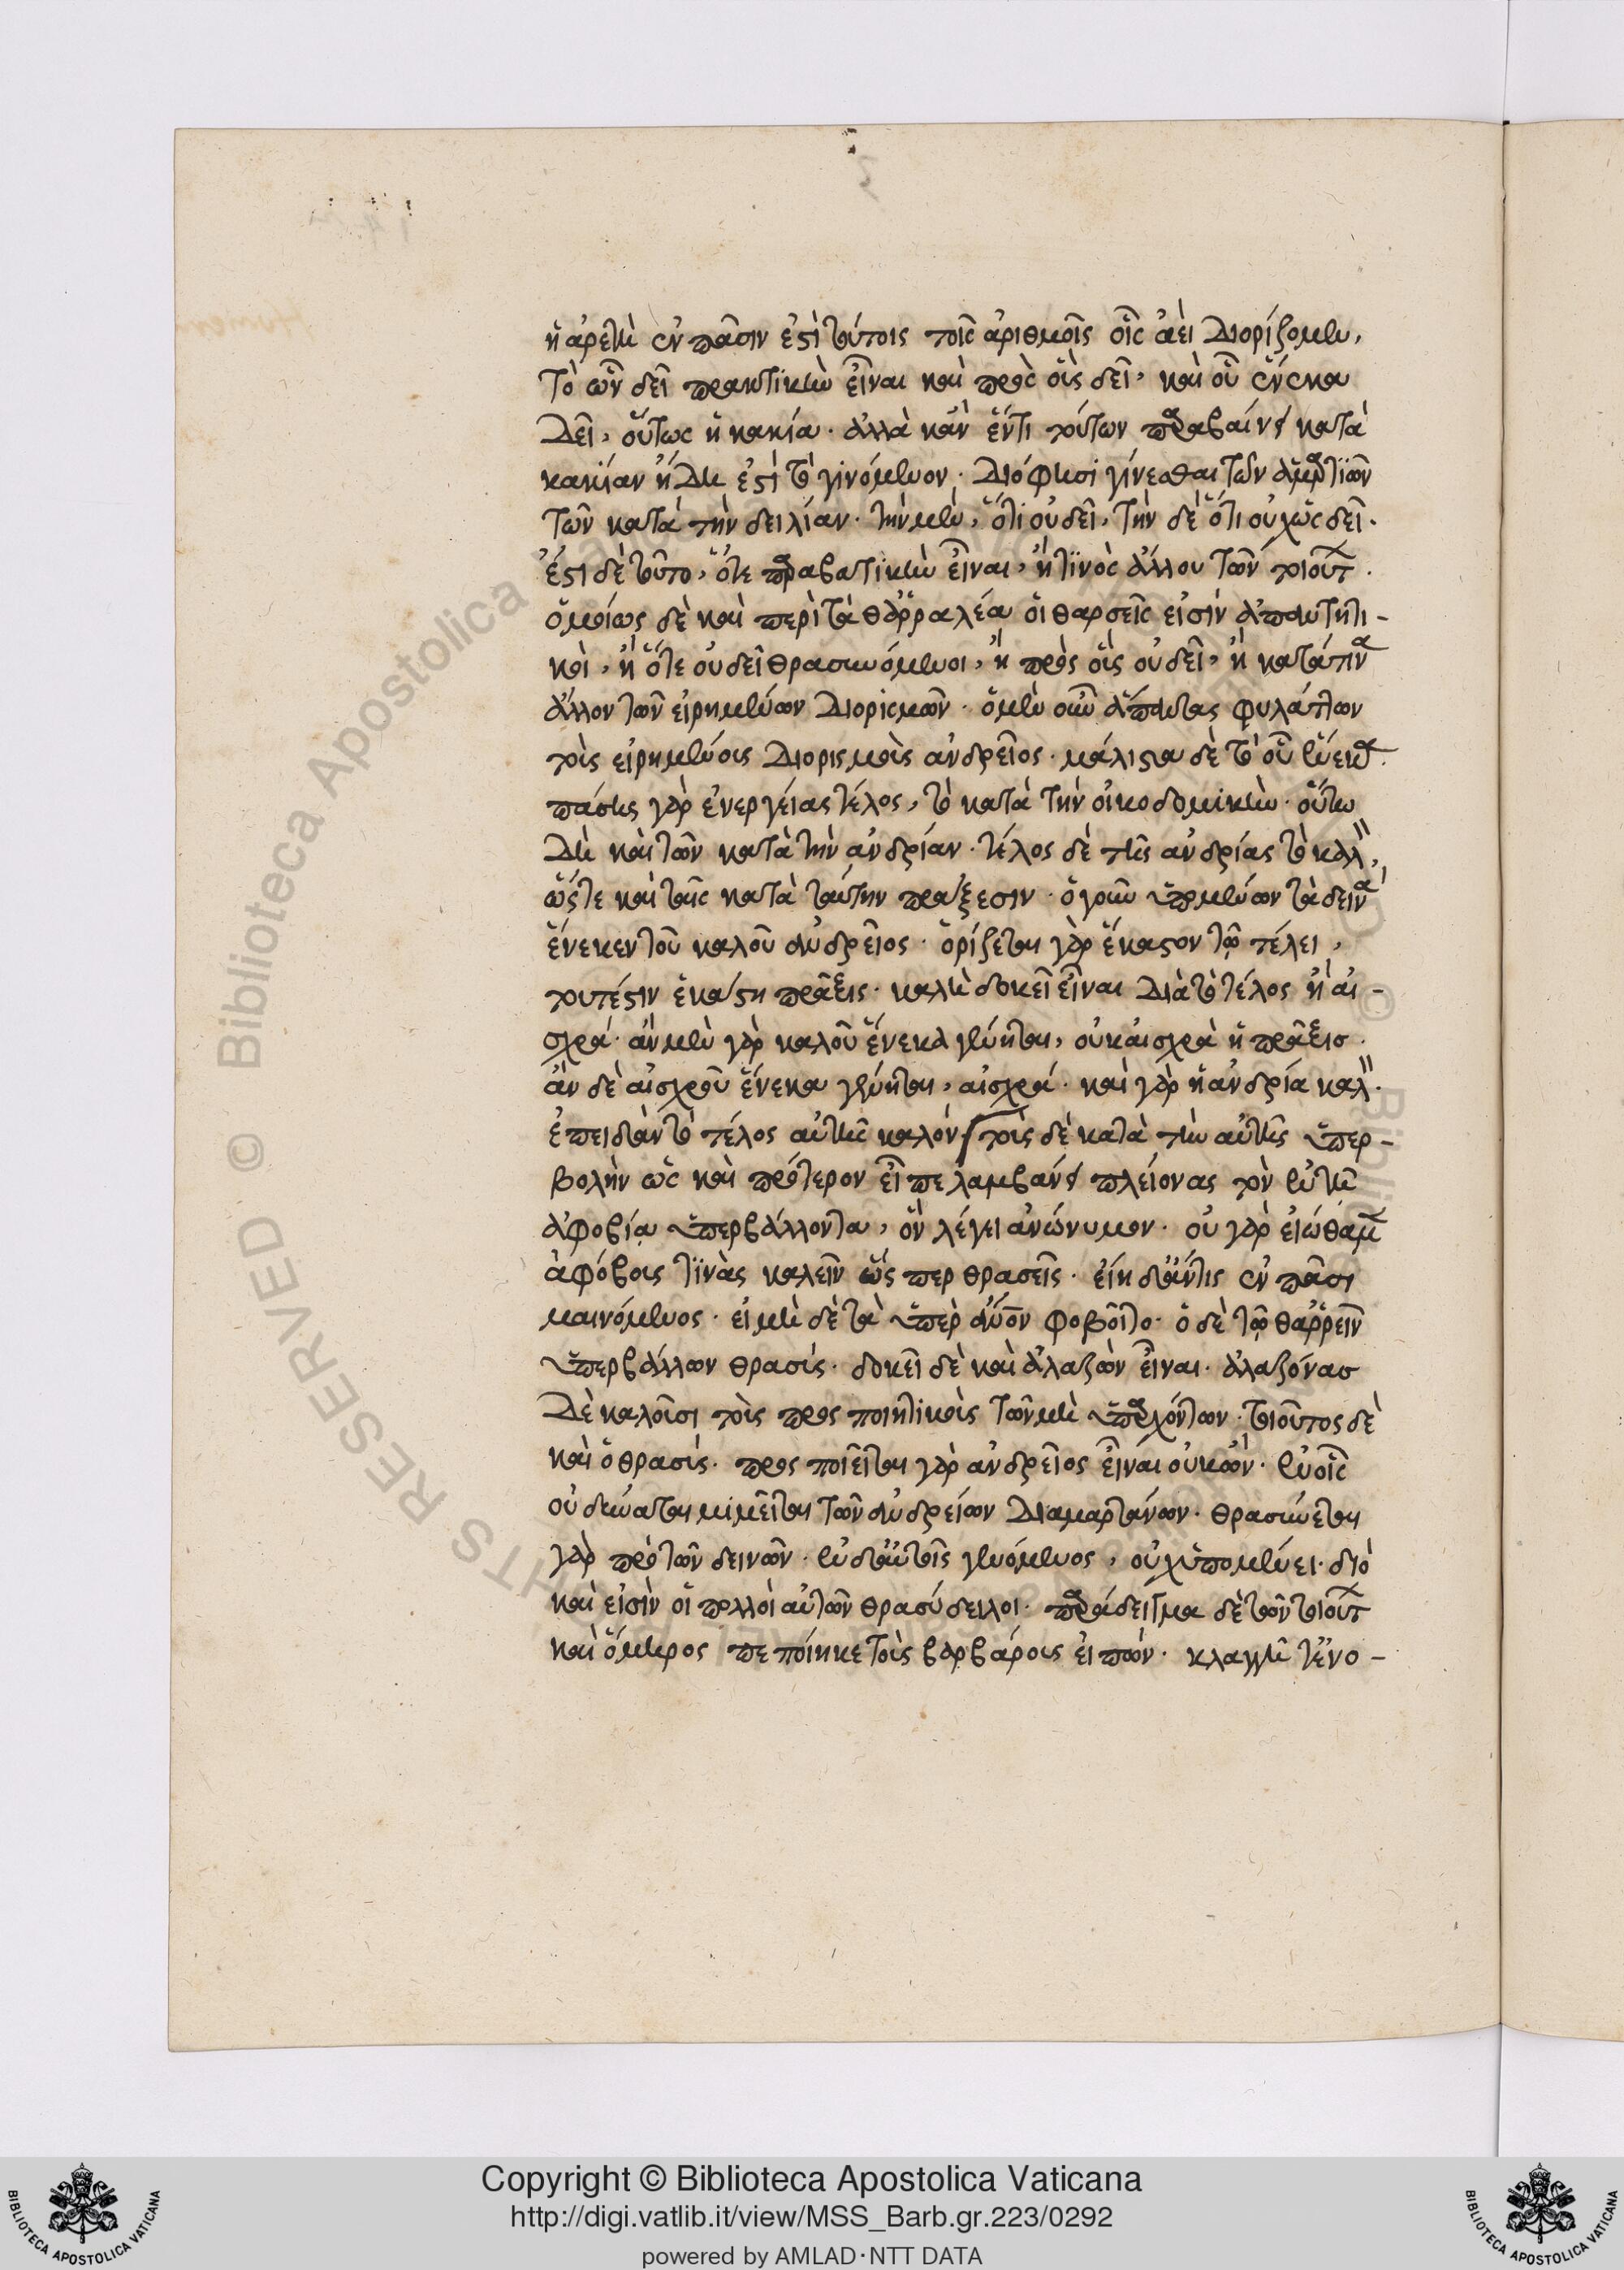 ἡ ἀρετὴ ἐν πᾶσιν ἐστὶ τούτοις τοῖς ἀριθμοῖς οἷς ἀεὶ διορίζομεν,
τὸ ὧν δεῖ πρακτικὴν εἶναι καὶ πρὸς οὓς δεῖ, καὶ οὗ ἕνεκα
δεῖ, οὕτως ἡ κακία. ἀλλὰ κἂν ἕν τι τούτων παραβαίνῃ κατὰ
κακίαν ἤδη ἐστὶ τὸ γινόμενον. διό φησι γίνεσθαι τῶν ἁμαρτιῶν
τῶν κατὰ τὴν δειλίαν. τὴν μὲν, ὅτι οὐ δεῖ, τὴν δὲ ὅτι οὐχ ὡς δεῖ.
ἔστι δὲ τοῦτο, ὅτε παραβατικὴν εἶναι, ἤ τινος ἄλλου τῶν τοιούτ.
ὁμοίως δὲ καὶ περὶ τὰ θαρραλέα οἱ θαρσεῖς εἰσὶν ἀπαντητι-
κοὶ, ἢ ὅτε οὐ δεῖ θρασυνόμενοι, ἢ πρὸς οὓς οὐ δεῖ, ἢ κατά τινα
ἄλλον τῶν εἰρημένων διορισμῶν. ὁ μὲν οὖν ἅπαντας φυλάττων
τοὺς εἰρημένους διορισμοὺς ἀνδρεῖος. μάλιστα δὲ τὸ οὗ ἕνεκα.
πάσης γὰρ ἐνεργείας τέλος, τὸ κατὰ τὴν οἰκοδομικὴν. οὕτω
δὴ καὶ τῶν κατὰ τὴν ἀνδρίαν. τέλος δὲ τῆς ἀνδρίας τὸ καλ,
ὥστε καὶ ταῖς κατὰ ταύτην πράξεσιν. ὁ γοῦν ὑπομένων τὰ δεινὰ
ἕνεκεν τοῦ καλοῦ ἀνδρεῖος. ὁρίζεται γὰρ ἕκαστον τῷ τέλει,
τουτέστιν ἑκάστη πρᾶξις. καλὴ δοκεῖ εἶναι διὰ τὸ τέλος ἢ αἰ-
σχρά. ἂν μὲν γὰρ καλοῦ ἕνεκα γένηται, οὐκ αἰσχρὰ ἡ πρᾶξις.
ἂν δὲ αἰσχροῦ ἕνεκα γένηται, αἰσχρά. καὶ γὰρ ἡ ἀνδρία καλ.
ἐπειδὰν τὸ τέλος αὐτῆς καλόν τοῖς δὲ κατὰ τὴν αὐτῆς ὑπερ-
βολὴν ὡς καὶ πρότερον εἶπε λαμβάνει πλείονας τὸν ἐν τῇ
ἀφοβίᾳ ὑπερβάλλοντα, ὃν λέγει ἀνώνυμον. οὐ γὰρ εἰώθαμεν
ἀφόβους τινὰς καλεῖν ὥσπερ θρασεῖς. εἴη δ' ἄν τις ἐν πᾶσι
μαινόμενος. εἰ μὴ δὲ τὰ ὑπὲρ ἄνον φοβοῖτο. ὁ δὲ τῷ θαρρεῖν
ὑπερβάλλων θρασύς. δοκεῖ δὲ καὶ ἀλαζὼν εἶναι. ἀλαζόνας
δὲ καλοῦσι τοὺς προσποιητικοὺς τῶν μὴ ὑπαρχόντων. τοιοῦτος δὲ
καὶ ὁ θρασύς. προσποιεῖται γὰρ ἀνδρεῖος εἶναι οὐκ ὤν. ἐν οἷς
οὐ δύναται μιμεῖται τῶν ἀνδρείων διαμαρτάνων. θρασύνεται
γὰρ πρὸ τῶν δεινῶν. ἐν δ' αὐτοῖς γενόμενος, οὐχ ὑπομένει. διὸ
καὶ εἰσὶν οἱ πολλοὶ αὐτῶν θρασύδειλοι. παράδειγμα δὲ τῶν τοιούτ
καὶ ὅμηρος πεποίηκε τοὺς βαρβάρους εἰπών. κλαγγῇ τ' ἐνο-
Copyright © Biblioteca Apostolica Vaticana
http://digi.vatlib.it/view/MSS_Barb.gr.223/0292
powered by AMLAD·NTT DATA